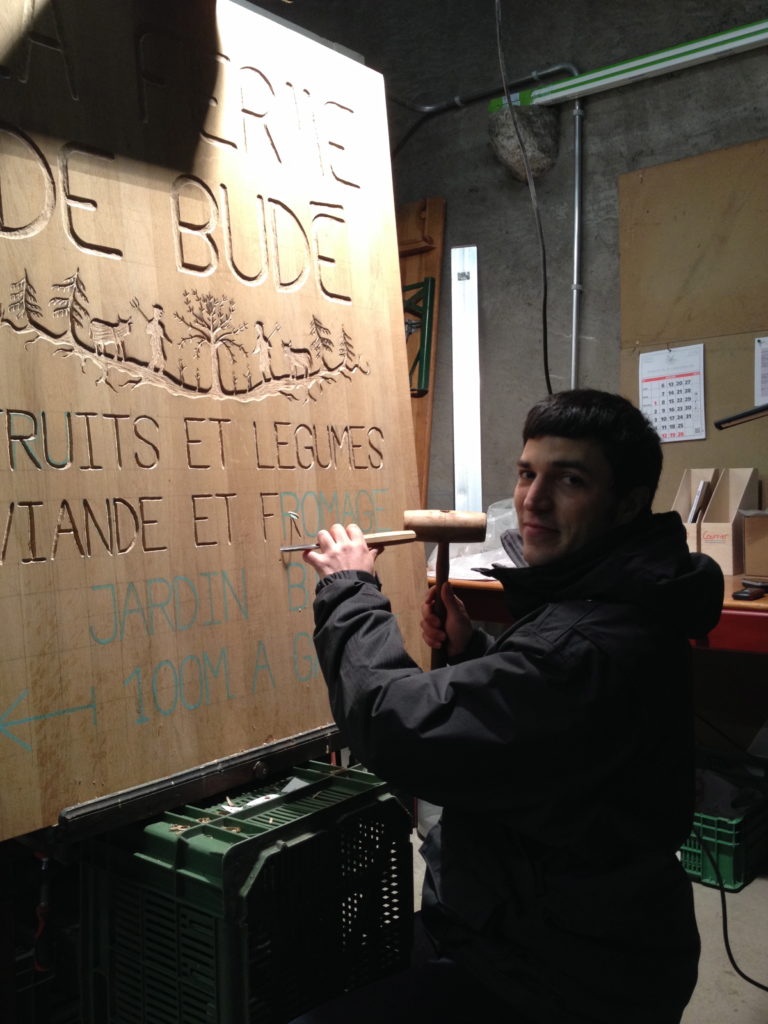 LA FERME
DE BUDÉ
FRUITS ET LEGUMES
VIANDE ET FROMAGE
JARDIN B
100M A G
Courrier